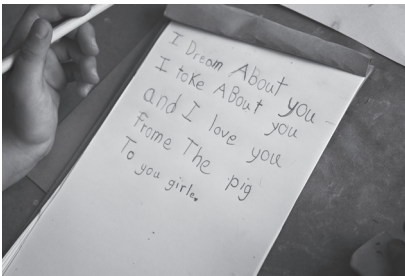 I Dream About you
I toke ABout you
and I love you
Frome The pig
To you girle.